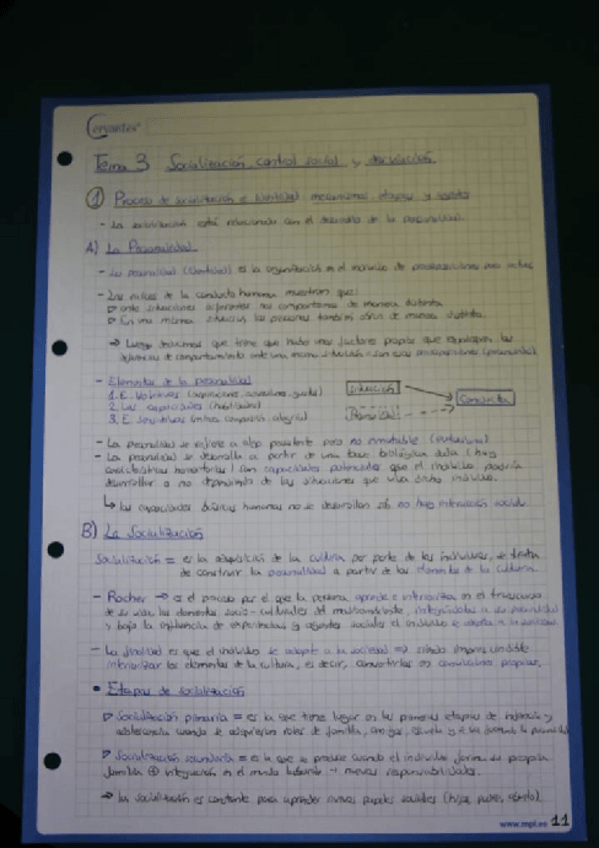 Cervantes
Tema 3 Socialización, control social y desviación
① Proceso de socialización e identidad: mecanismos, etapas y agentes
- La socialización está relacionada con el desarrollo de la personalidad.
A) La Personalidad
- La personalidad (identidad) es la organización en el individuo de predisposiciones para actuar.
- Las raíces de la conducta humana muestran que:
▷ ante situaciones diferentes nos comportamos de manera distinta
▷ En una misma situación las personas también obran de manera distinta.
⇒ Luego deducimos que tiene que haber unos factores propios que expliquen las
diferencias de comportamiento ante una misma situación = son esas predisposiciones (personalidad)
- Elementos de la personalidad
1. E. Volitivos (aspiraciones, gustos)
2. Las capacidades (habilidades)
3. E. (tristeza, compasión, alegría)
Situación
Personalidad
Conducta
- La personalidad se refiere a algo persistente pero no inmutable (evoluciona)
- La personalidad se desarrolla a partir de una base biológica dada (hay
características hereditarias) son capacidades potenciales que el individuo podría
desarrollar o no dependiendo de las situaciones que viva dicho individuo.
↳ las capacidades básicas humanas no se desarrollan si no hay interacción social.
B) La Socialización
Socialización = es la adquisición de la cultura por parte de los individuos, se trata
de construir la personalidad a partir de los elementos de la cultura.
- Rocher → es el proceso por el que la persona aprende e interioriza en el transcurso
de su vida los elementos socio-culturales del medio ambiente, integrándolos a su personalidad
y bajo la influencia de experiencias y agentes sociales el individuo se adapta a la sociedad.
- La finalidad es que el individuo se adapte a la sociedad ⇒ siendo imprescindible
interiorizar los elementos de la cultura, es decir, convertirlos en convicciones propias.
• Etapas de socialización
▷ Socialización primaria = es la que tiene lugar en las primeras etapas de infancia y
adolescencia cuando se adquieren roles de familia, amigos, escuela y se va formando la personalidad
▷ Socialización secundaria = es la que se produce cuando el individuo forma su propia
familia ⊕ integración en el mundo laboral → nuevas responsabilidades.
⇒ La socialización es constante para aprender nuevos papeles sociales (hijos, padres, abuelo).
www.mpl.es 11